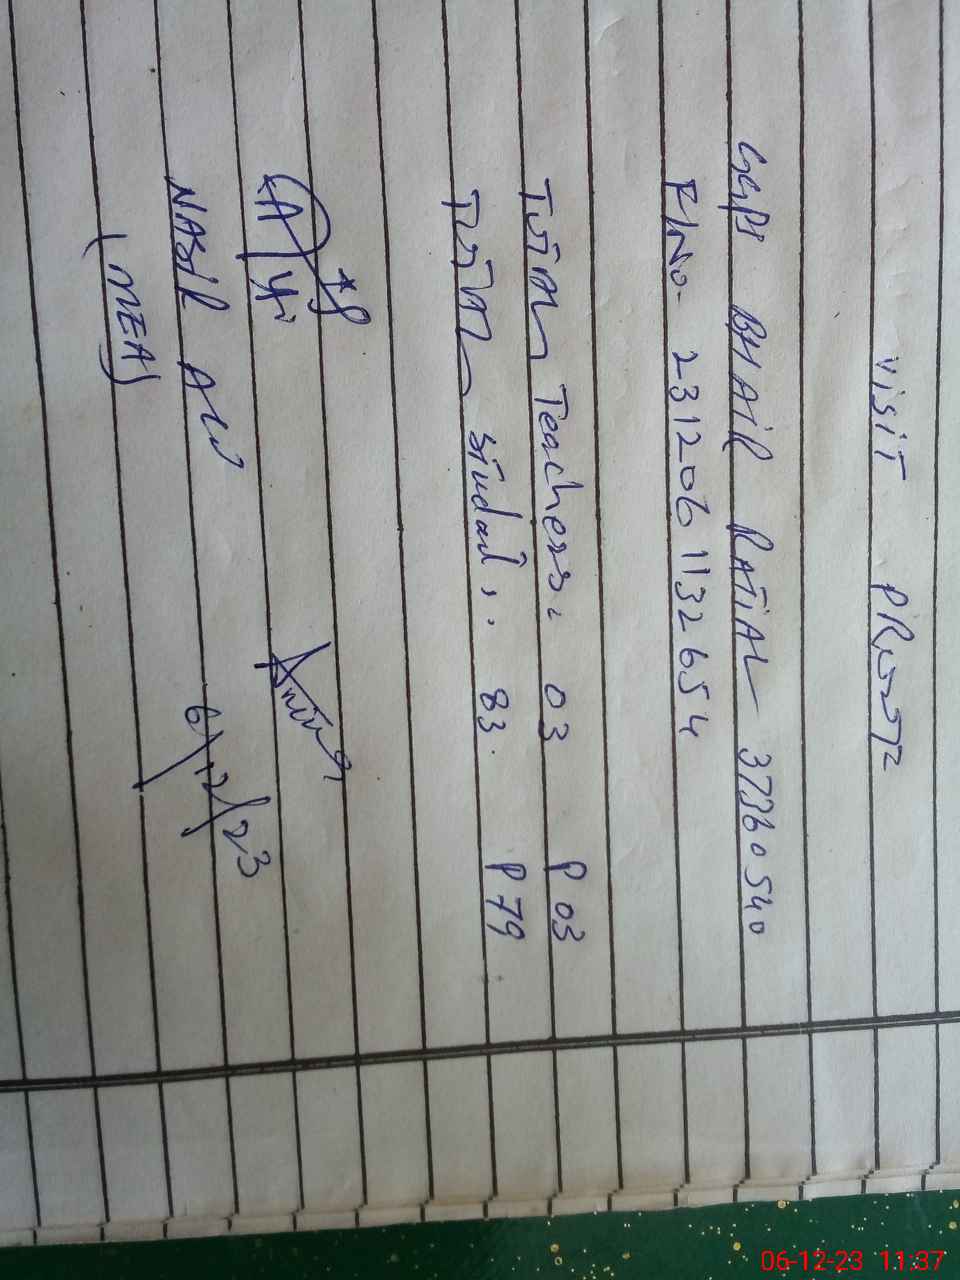 visit PROOF
GGPS BHAIR RATIAL 37360540
F/No. 231206 1132654
Total Teachers: 03 P 03
Total Student,: 83. P 79
NASIR ALI 6/12/23
(MEA)
06-12-23 11:37